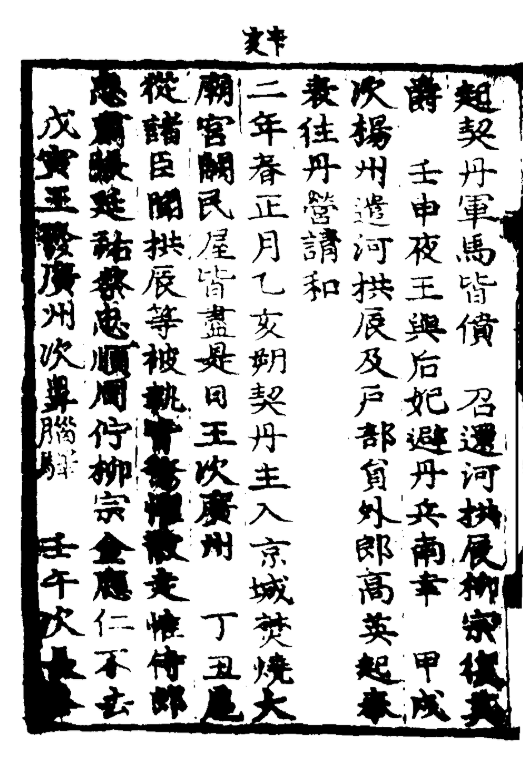 辛亥
起契丹軍馬皆僨 召還河拱辰柳宗復其
爵 壬申夜王與后妃避丹兵南幸 甲戌
次揚州遣河拱辰及戶部員外郎高英起奉
表往丹營請和
二年春正月乙亥朔契丹主入京城焚燒大
廟宮闕民屋皆盡是日王次廣州 丁丑扈
從諸臣聞拱辰等被執皆驚懼散走惟侍郎
忠肅張延祐蔡忠順周佇柳宗金應仁不去
戊寅王發廣州次鼻腦驛 壬午次長